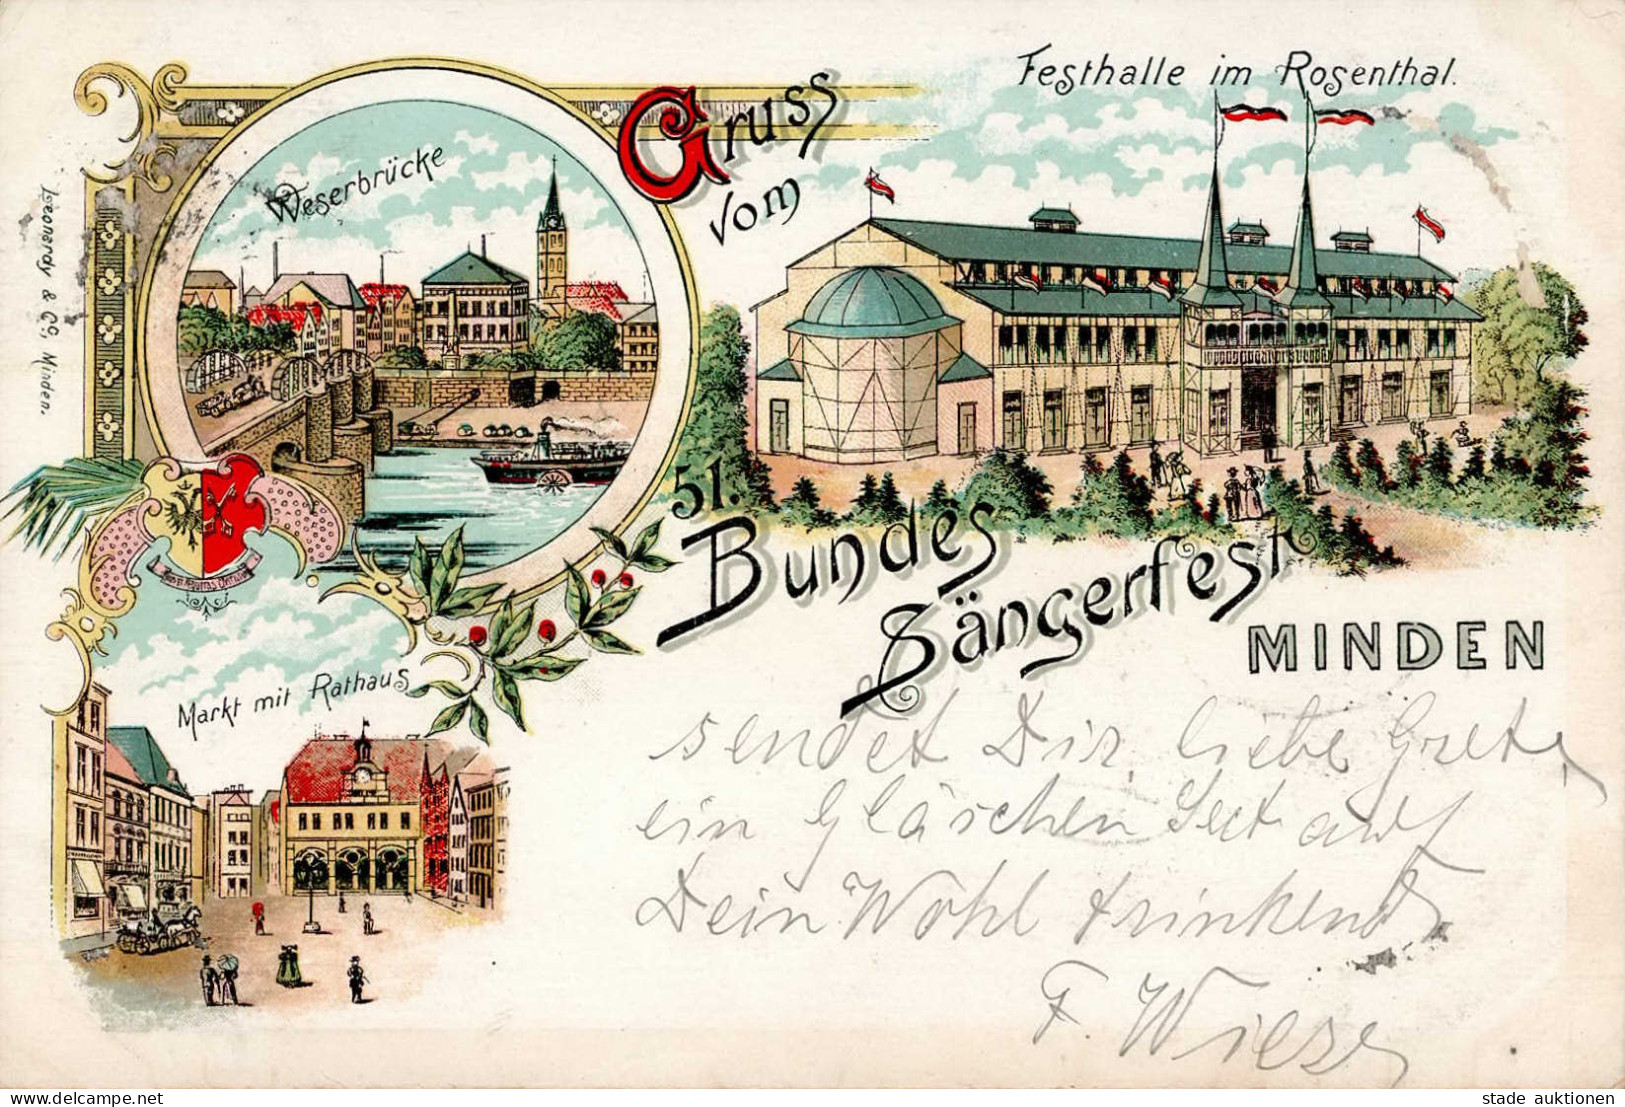 Gruss
vom
51.
Bundes
Sängerfest
MINDEN
Festhalle im Rosenthal.
Weserbrücke
Markt mit Rathaus
Leonardy & Co, Minden.
sendet Dir, liebe Grete,
ein Gläschen Sect auf
Dein Wohl trinkend
F. Wiese
hip-post.com
stade auktionen